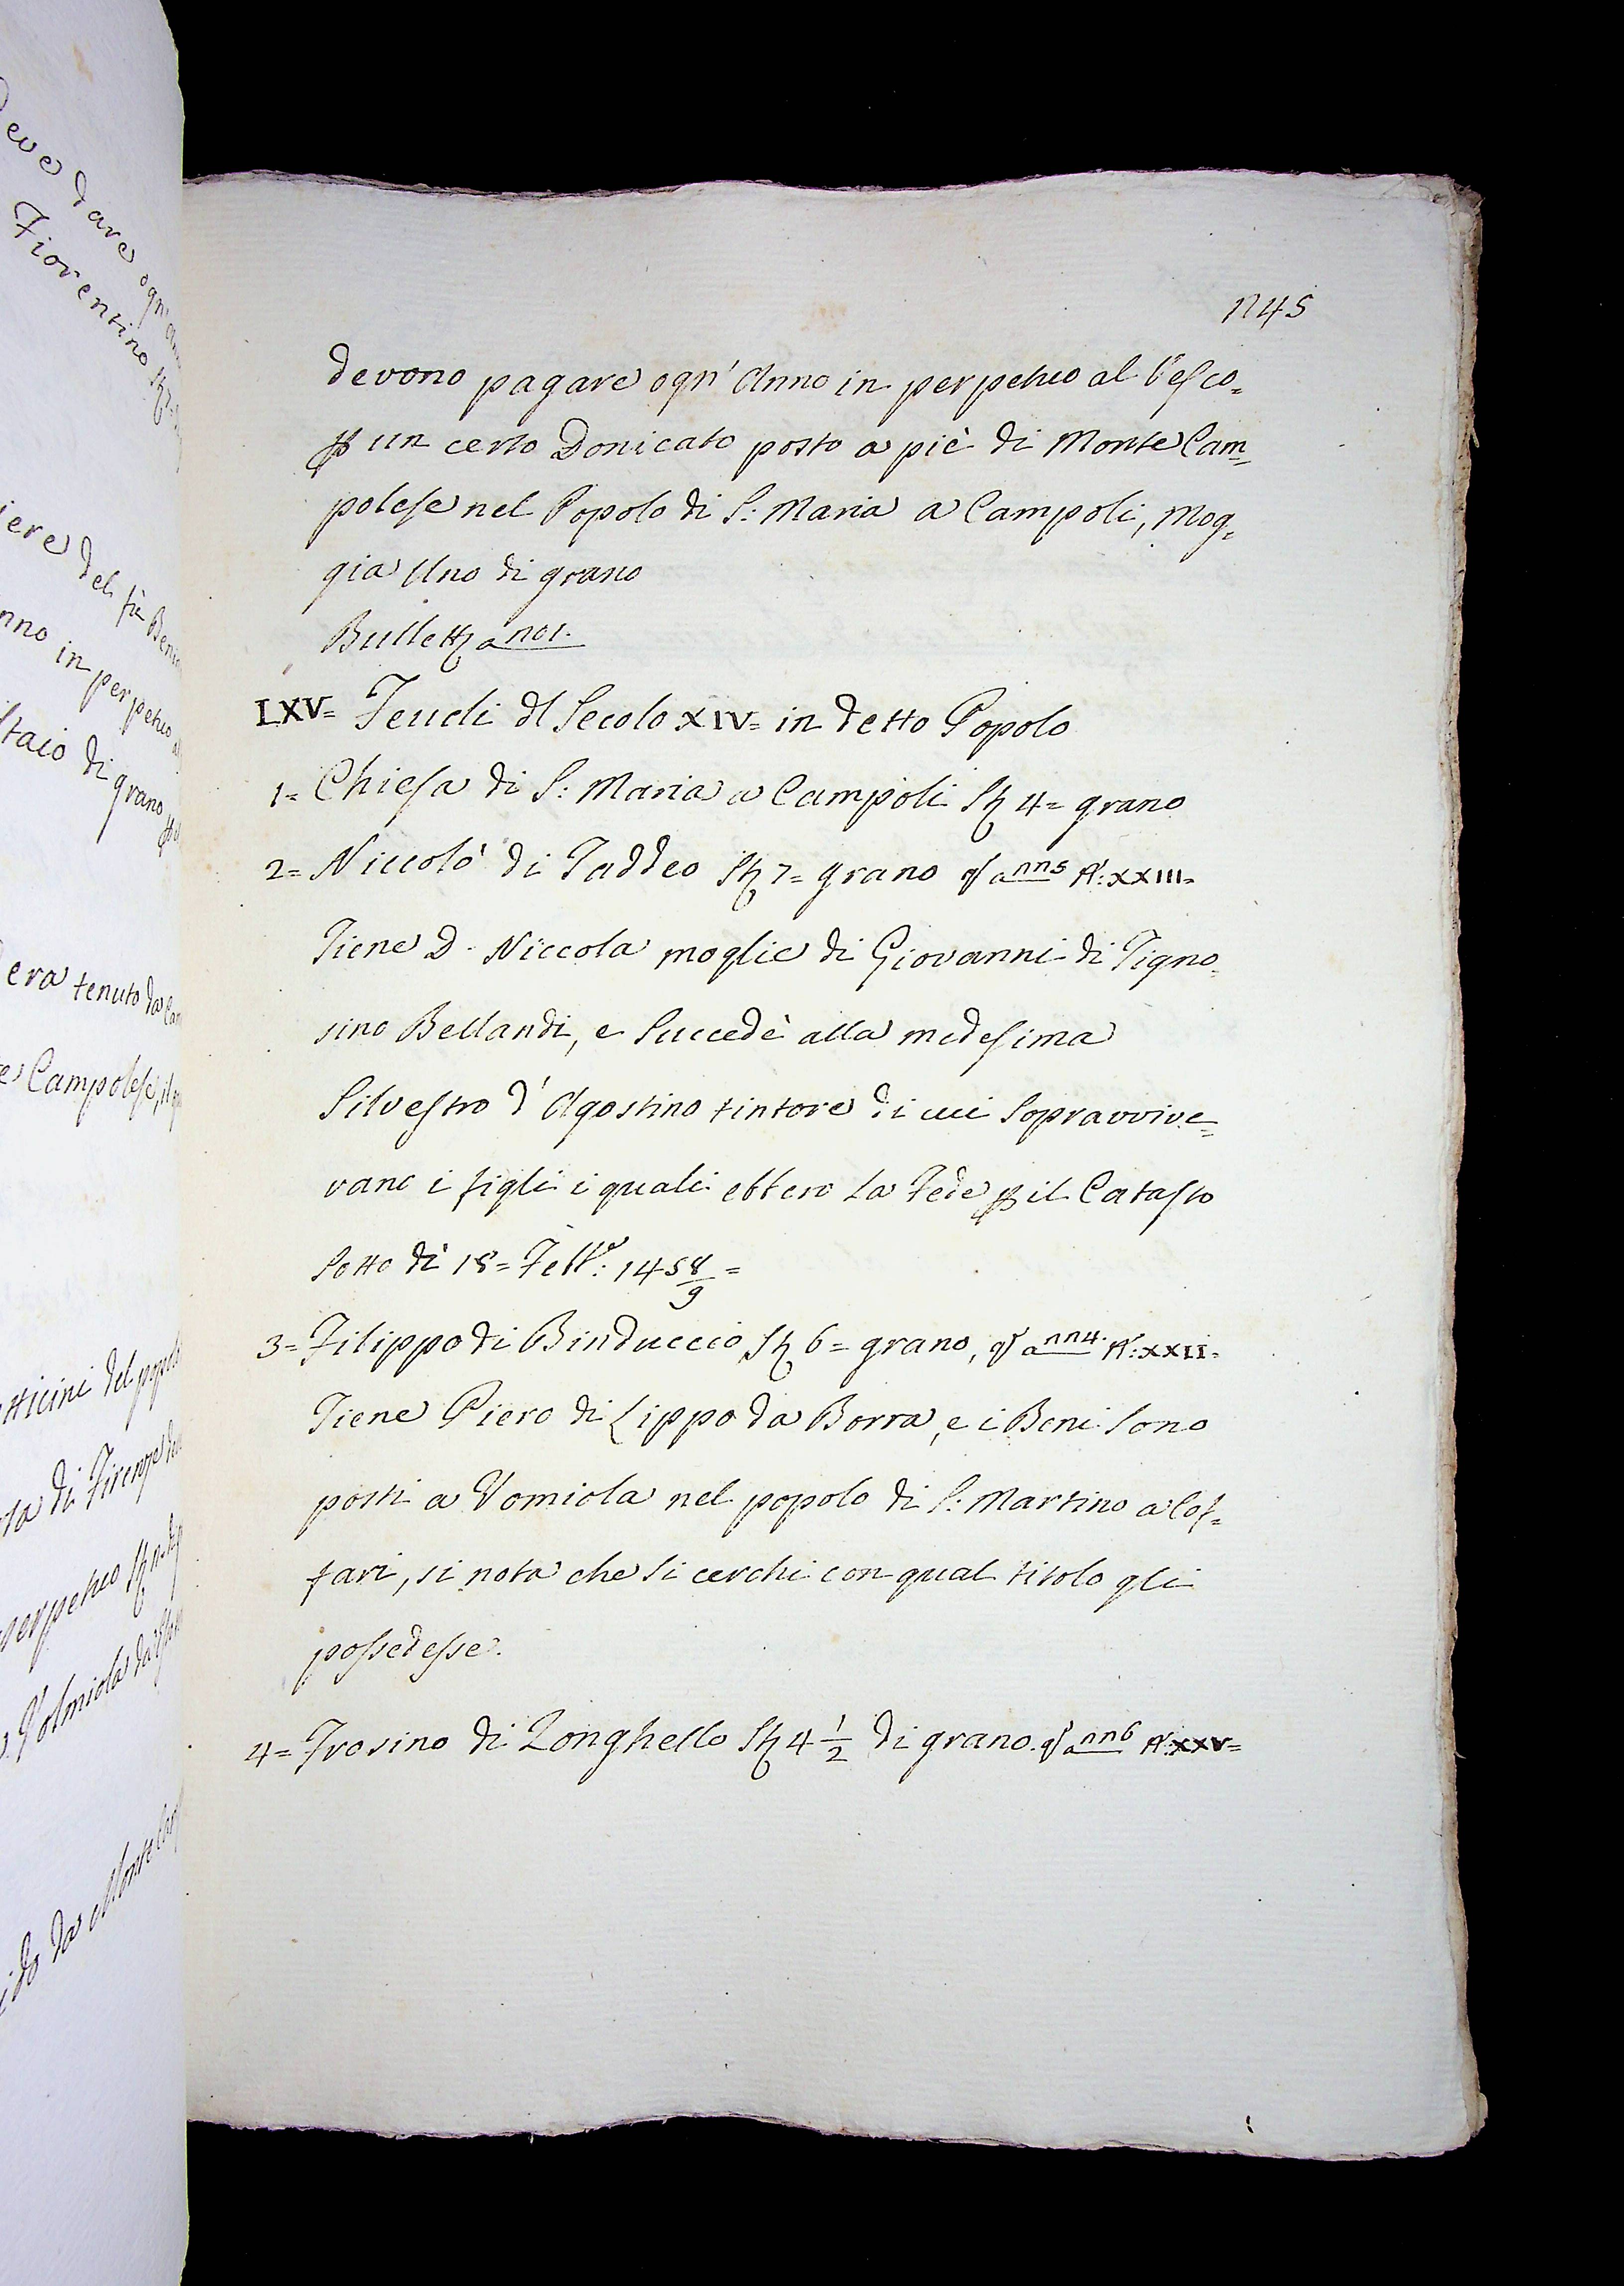 1145
devono pagare ogn' Anno in perpetuo al Vesco=
p un certo Donicato posto a piè di Monte Cam=
polese nel Popolo di S: Maria a Campoli, Mog=
gia Uno di grano
Bulletta 1101.
LXV= Feudi dl Secolo XIV= in detto Popolo
1= Chiesa di S: Maria a Campoli St 4= grano
2= Niccolò di Taddeo St 7= grano a 1115 N: XXIII=
Tiene D. Niccola moglie di Giovanni di Tigno=
sino Bellandi, e Succedè alla medesima
Silvestro d' Agostino tintore di cui Sopravvive=
vano i figli i quali ebbero la Fede p il Catasto
Sotto dì 18= Febb.º: 1458/9=
3= Filippo di Binduccio St 6= grano, a 1114. N: XXII=
Tiene Piero di Lippo da Borra, e i Beni Sono
posti a Vomiola nel popolo di S: Martino a Cof=
fari, si nota che Si cerchi con qual titolo gli
possedesse.
4= Frosino di Zonghello St 4 1/2 di grano. a 1116 N: XXV=
deve dare ogn'
Fiorentino
del fù
in perpetuo
staio di grano
era tenuto da
Campolese, il
del popolo
di Firenze
perpetuo
Volmiola da
da Monte